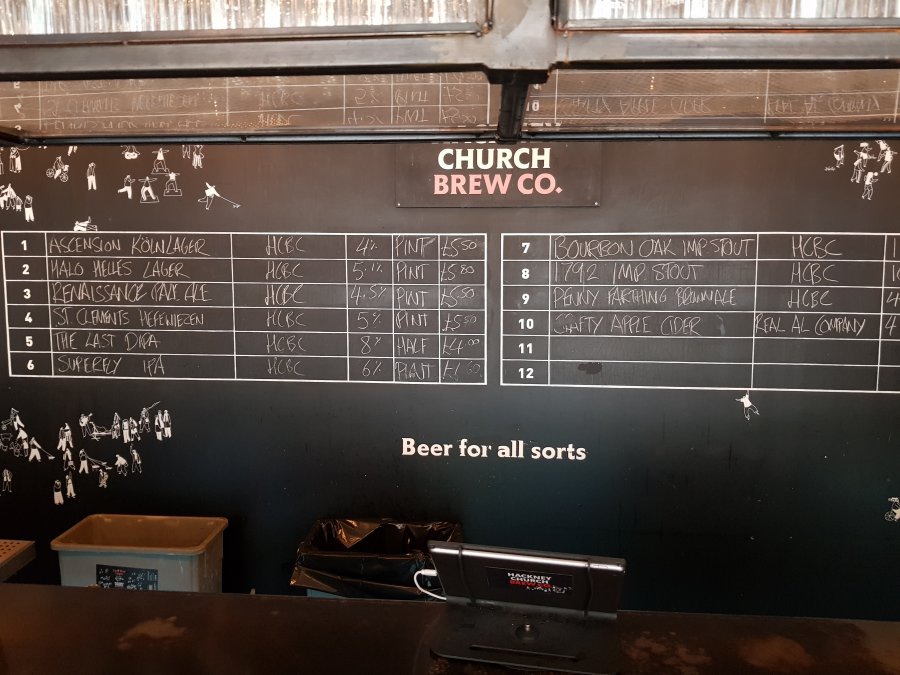 CHURCH
BREW CO.
1 ASCENSION KÖLNLAGER HCBC 4% PINT £5.50
2 HALO HELLES LAGER HCBC 5.1% PINT £5.80
3 RENAISSANCE PALE ALE HCBC 4.5% PINT £5.50
4 ST CLEMENTS HEFEWIEZEN HCBC 5% PINT £5.50
5 THE LAST DIPA HCBC 8% HALF £4.00
6 SUPERFLY IPA HCBC 6% PINT
7 BOURBON OAK IMP STOUT HCBC
8 1792 IMP STOUT HCBC
9 PENNY FARTHING BROWN ALE HCBC 4
10 CRAFTY APPLE CIDER REAL AL COMPANY 4
11
12
Beer for all sorts
HACKNEY
CHURCH
BREW CO.